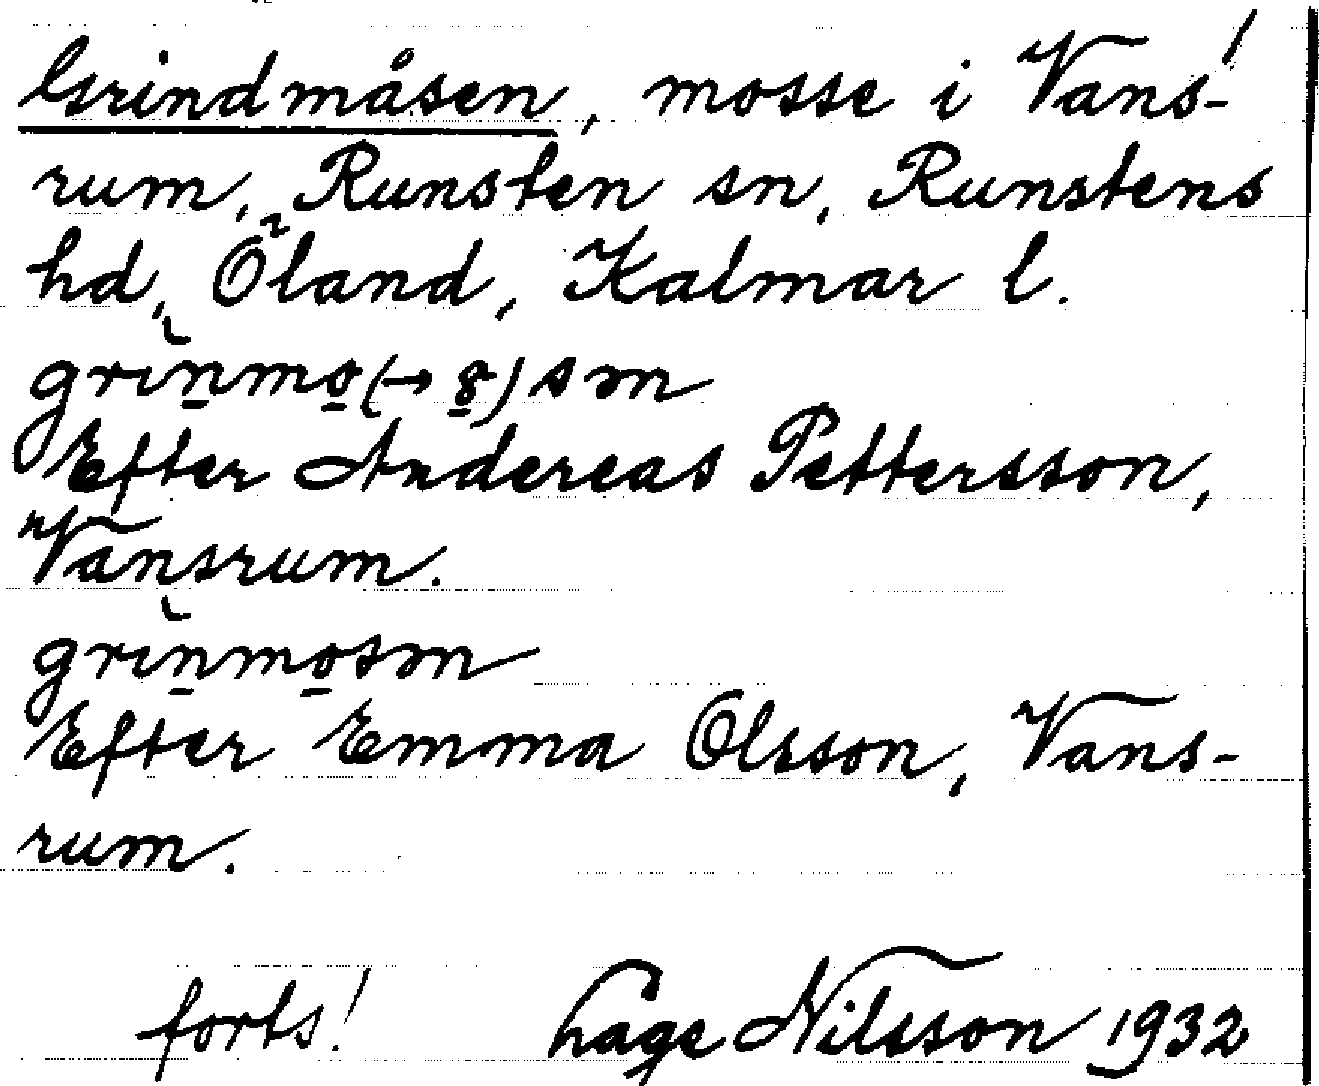 Grindmåsen, mosse i Vans-
rum, Runsten sn, Runstens
hd, Öland, Kalmar l.
grin̠mo̠(→ 8̠)sən
Efter Andereas Pettersson,
Vansrum.
grin̠mo̠sən
Efter Emma Olsson, Vans-
rum.
forts! Hage Nilsson 1932